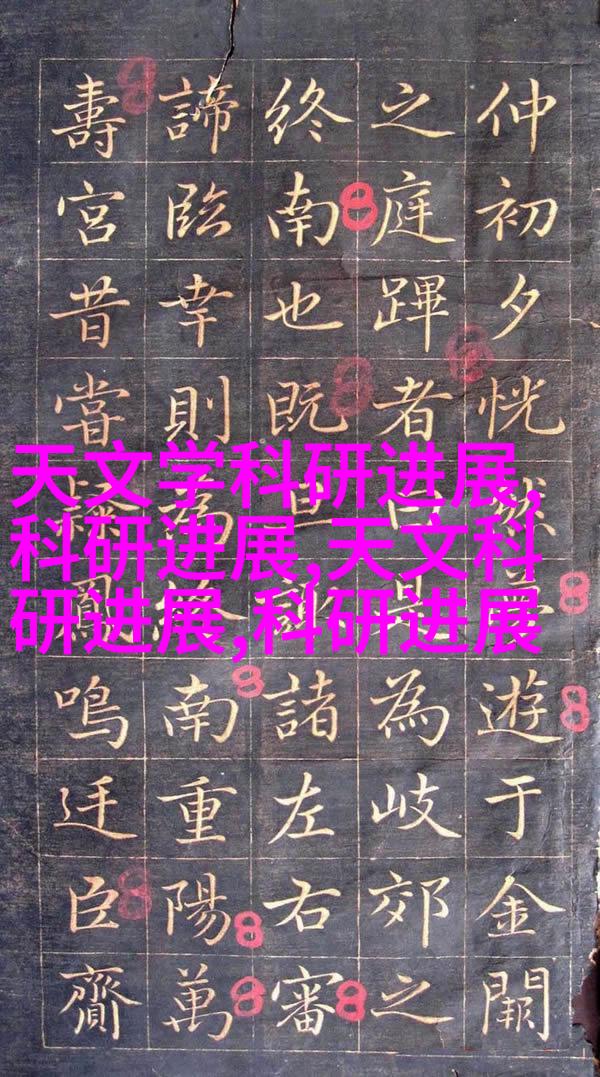 仲初夕恍然遊于金闕
之庭蹕者曰為岐郊之
終南也既旦諸左右審
諦臨幸則為南重陽萬
壽宮昔嘗鳳鳴廷臣齎
天文学科研进展,
科研进展,天文科
研进展,科研进展